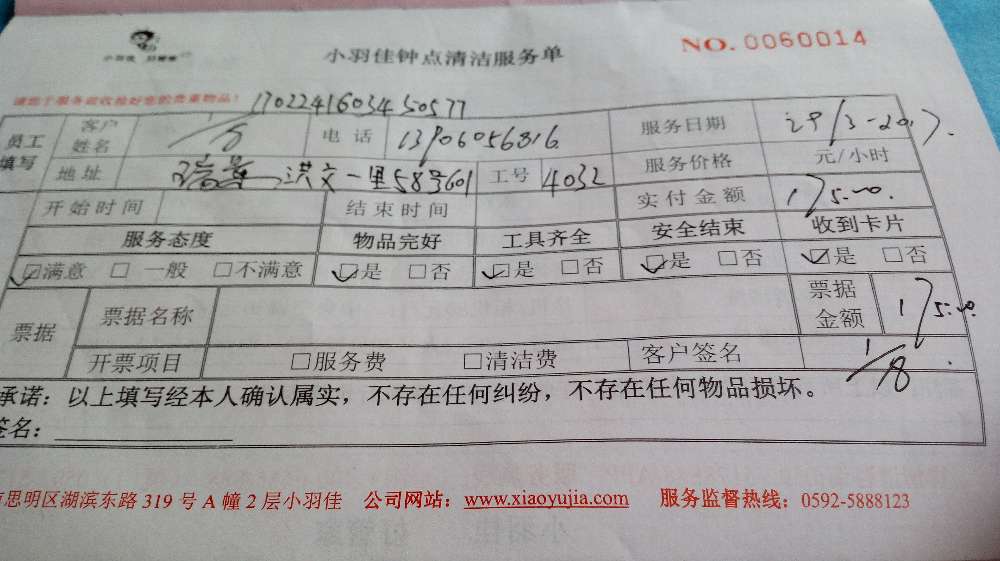 小羽佳 好管家
小羽佳钟点清洁服务单
NO. 0060014
请您于服务前收捡好您的贵重物品！
1702241603450577
员工填写 客户姓名 电话 13906056816 服务日期 29/3-2017.
地址 瑞景 洪文一里58号601 工号 4032 服务价格 元/小时
开始时间 结束时间 实付金额 175.00.
服务态度 物品完好 工具齐全 安全结束 收到卡片
☑满意 □一般 □不满意 ☑是 □否 ☑是 □否 ☑是 □否 ☑是 □否
票据 票据名称 票据金额 175.00.
开票项目 □服务费 □清洁费 客户签名
承诺：以上填写经本人确认属实，不存在任何纠纷，不存在任何物品损坏。
签名：
思明区湖滨东路 319 号 A 幢 2 层小羽佳 公司网站：www.xiaoyujia.com 服务监督热线：0592-5888123